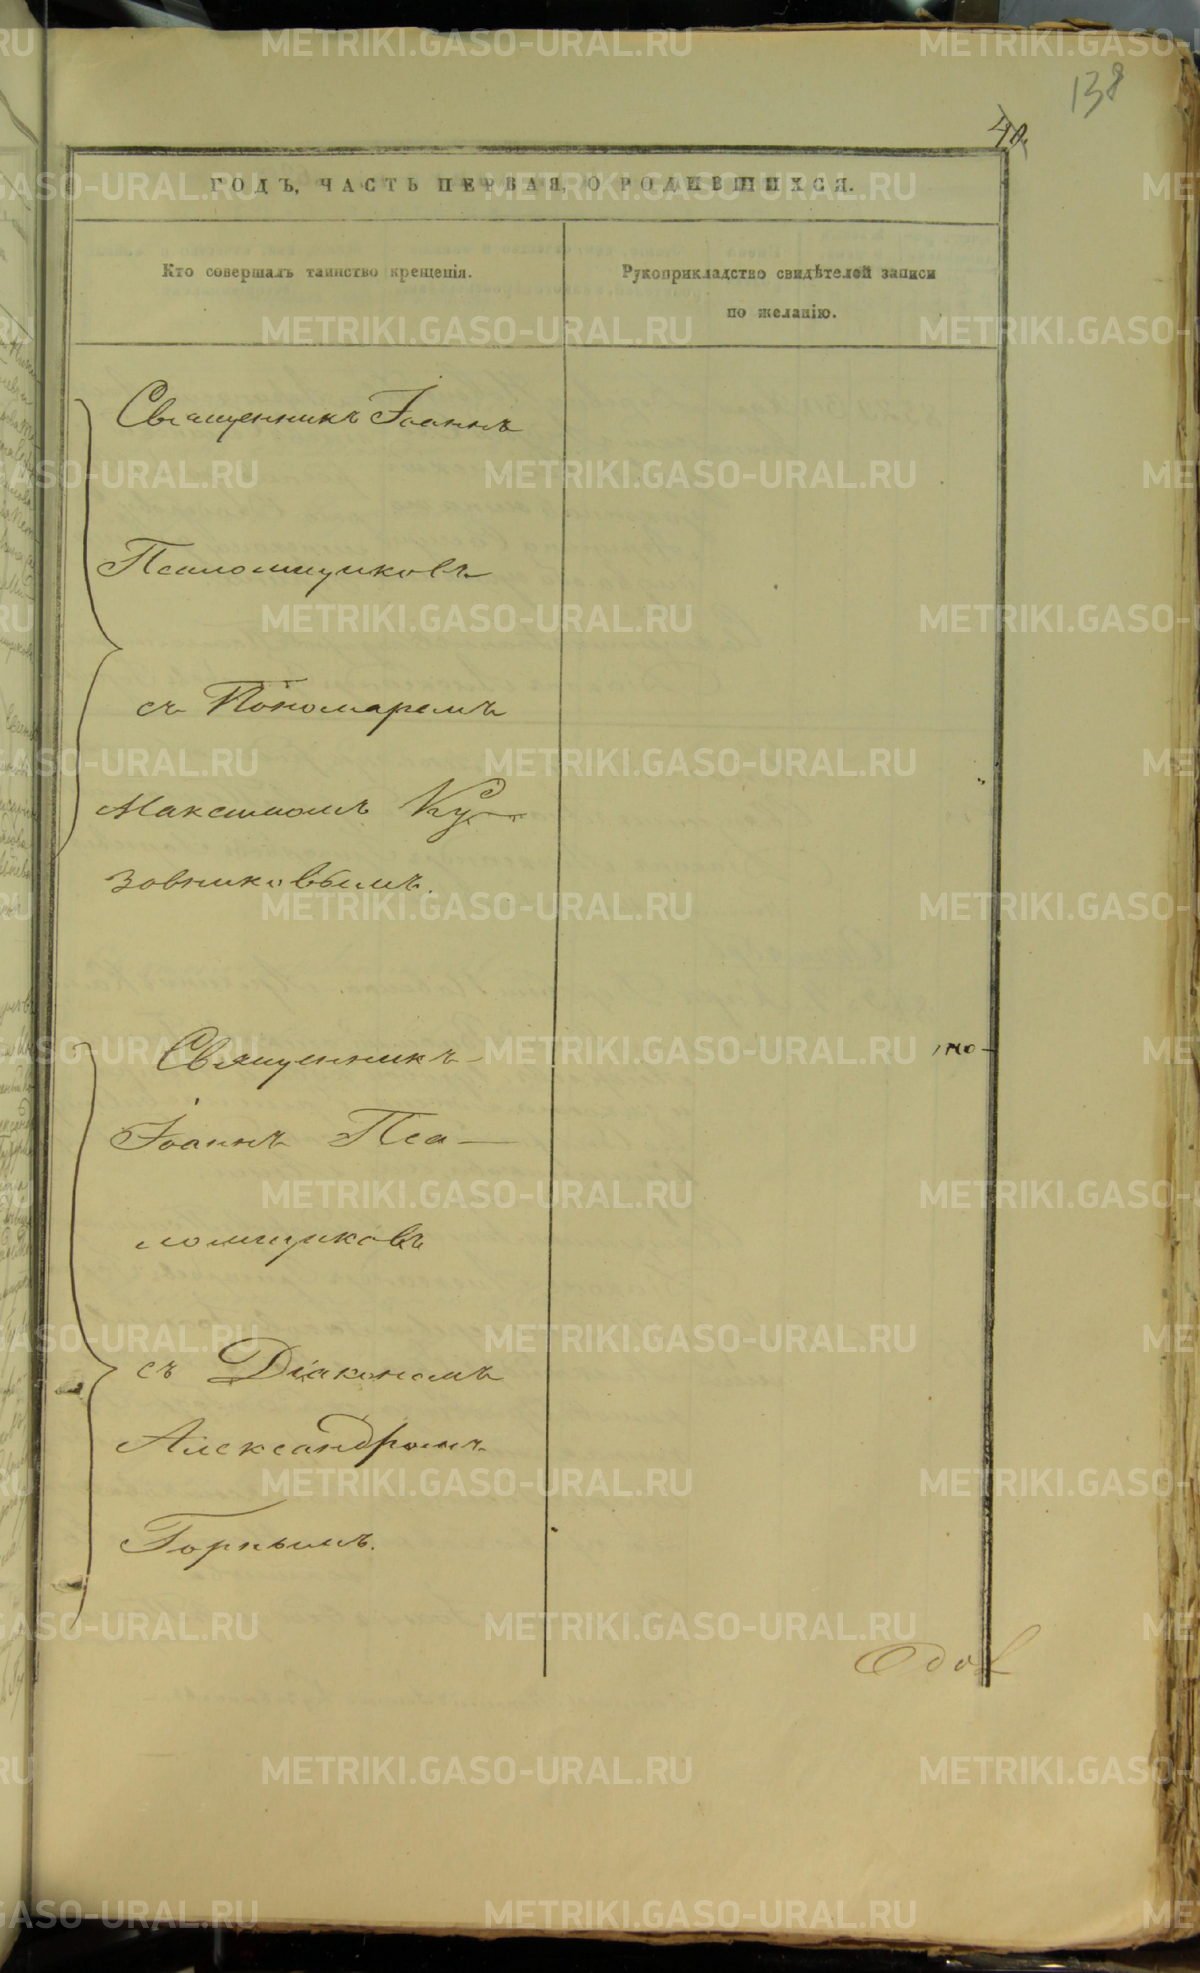 138
ГОДЪ, ЧАСТЬ ПЕРВАЯ, О РОДИВШИХСЯ.
Кто совершалъ таинство крещенія.
Рукоприкладство свидѣтелей записи
по желанію.
Священникъ Іоаннъ
Псаломщиковъ
съ Пономаремъ
Максимомъ Ку
зовниковымъ.
Священникъ
Іоаннъ Пса-
ломщиковъ
съ Діакономъ
Александромъ
Горнымъ.
METRIKI.GASO-URAL.RU